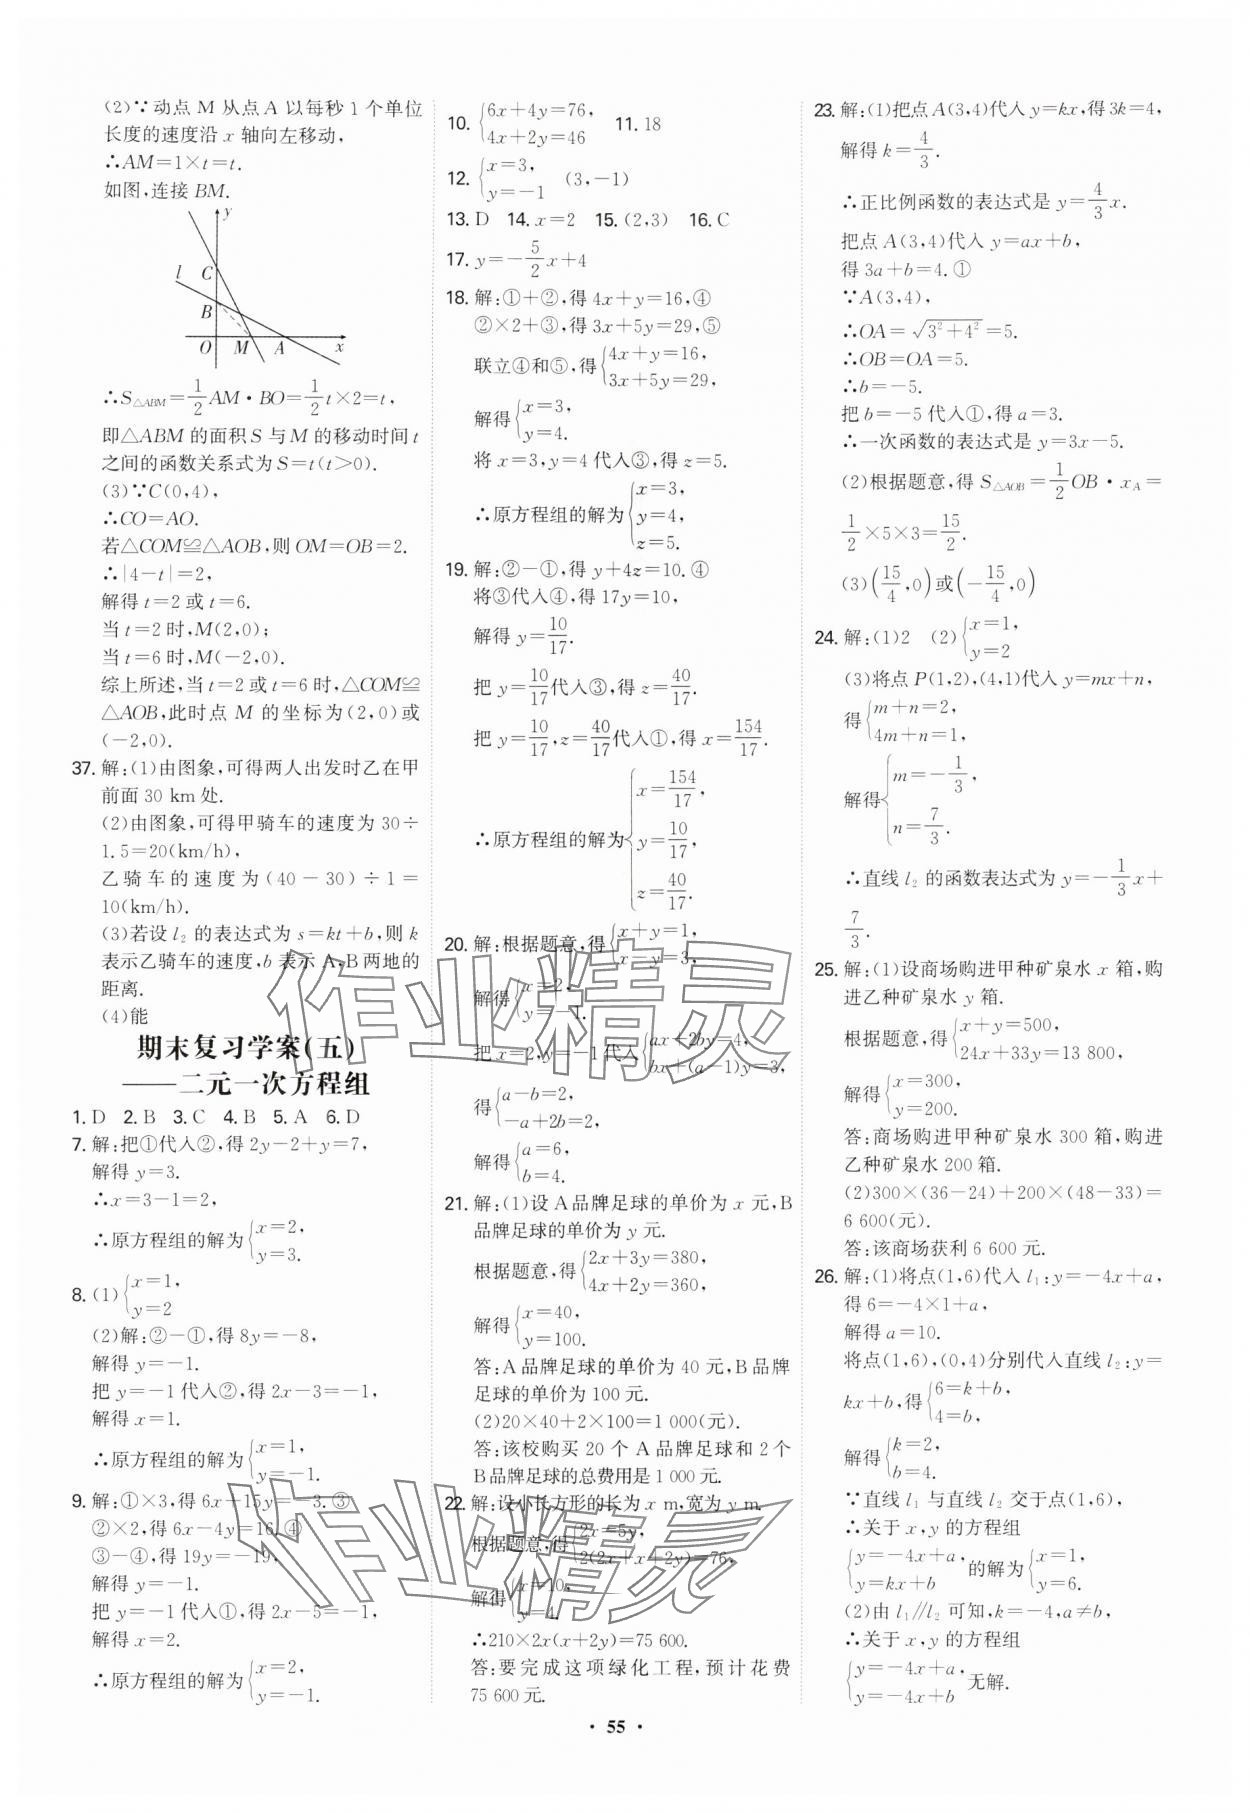 (2)∵动点 M 从点 A 以每秒 1 个单位
长度的速度沿 x 轴向左移动,
∴AM=1×t=t.
如图,连接 BM.
y
l
C
B
O M A x
∴S△ABM=1/2 AM·BO=1/2 t×2=t,
即△ABM 的面积 S 与 M 的移动时间 t
之间的函数关系式为 S=t(t>0).
(3)∵C(0,4),
∴CO=AO.
若△COM≌△AOB,则 OM=OB=2.
∴|4-t|=2,
解得 t=2 或 t=6.
当 t=2 时,M(2,0);
当 t=6 时,M(-2,0).
综上所述,当 t=2 或 t=6 时,△COM≌
△AOB,此时点 M 的坐标为(2,0)或
(-2,0).
37. 解:(1)由图象,可得两人出发时乙在甲
前面 30 km 处.
(2)由图象,可得甲骑车的速度为 30÷
1.5=20(km/h),
乙骑车的速度为(40-30)÷1=
10(km/h).
(3)若设 l₂ 的表达式为 s=kt+b,则 k
表示乙骑车的速度,b 表示 A,B 两地的
距离.
(4)能
期末复习学案(五)
——二元一次方程组
1. D 2. B 3. C 4. B 5. A 6. D
7. 解:把①代入②,得 2y-2+y=7,
解得 y=3.
∴x=3-1=2,
∴原方程组的解为{x=2,
y=3.
8. (1){x=1,
y=2
(2)解:②-①,得 8y=-8,
解得 y=-1.
把 y=-1 代入②,得 2x-3=-1,
解得 x=1.
∴原方程组的解为{x=1,
y=-1.
9. 解:①×3,得 6x+15y=-3. ③
②×2,得 6x-4y=16. ④
③-④,得 19y=-19,
解得 y=-1.
把 y=-1 代入①,得 2x-5=-1,
解得 x=2.
∴原方程组的解为{x=2,
y=-1.
10. {6x+4y=76,
4x+2y=46 11. 18
12. {x=3,
y=-1 (3,-1)
13. D 14. x=2 15. (2,3) 16. C
17. y=-5/2 x+4
18. 解:①+②,得 4x+y=16,④
②×2+③,得 3x+5y=29,⑤
联立④和⑤,得{4x+y=16,
3x+5y=29,
解得{x=3,
y=4.
将 x=3,y=4 代入③,得 z=5.
∴原方程组的解为{x=3,
y=4,
z=5.
19. 解:②-①,得 y+4z=10. ④
将③代入④,得 17y=10,
解得 y=10/17.
把 y=10/17 代入③,得 z=40/17.
把 y=10/17,z=40/17 代入①,得 x=154/17.
∴原方程组的解为{x=154/17,
y=10/17,
z=40/17.
20. 解:根据题意,得{x+y=1,
x-y=3,
解得{x=2,
y=-1.
把 x=2,y=-1 代入{ax+2by=4,
bx+(a-1)y=3,
得{a-b=2,
-a+2b=2,
解得{a=6,
b=4.
21. 解:(1)设 A 品牌足球的单价为 x 元,B
品牌足球的单价为 y 元.
根据题意,得{2x+3y=380,
4x+2y=360,
解得{x=40,
y=100.
答:A 品牌足球的单价为 40 元,B 品牌
足球的单价为 100 元.
(2)20×40+2×100=1 000(元).
答:该校购买 20 个 A 品牌足球和 2 个
B 品牌足球的总费用是 1 000 元.
22. 解:设小长方形的长为 x m,宽为 y m.
根据题意,得{2x=5y,
2(2x+x+2y)=76,
解得{x=10,
y=4.
∴210×2x(x+2y)=75 600.
答:要完成这项绿化工程,预计花费
75 600 元.
23. 解:(1)把点 A(3,4)代入 y=kx,得 3k=4,
解得 k=4/3.
∴正比例函数的表达式是 y=4/3 x.
把点 A(3,4)代入 y=ax+b,
得 3a+b=4. ①
∵A(3,4),
∴OA=√(3²+4²)=5.
∴OB=OA=5.
∴b=-5.
把 b=-5 代入①,得 a=3.
∴一次函数的表达式是 y=3x-5.
(2)根据题意,得 S△AOB=1/2 OB·xA=
1/2×5×3=15/2.
(3)(15/4,0)或(-15/4,0)
24. 解:(1)2 (2){x=1,
y=2
(3)将点 P(1,2),(4,1)代入 y=mx+n,
得{m+n=2,
4m+n=1,
解得{m=-1/3,
n=7/3.
∴直线 l₂ 的函数表达式为 y=-1/3 x+
7/3.
25. 解:(1)设商场购进甲种矿泉水 x 箱,购
进乙种矿泉水 y 箱.
根据题意,得{x+y=500,
24x+33y=13 800,
解得{x=300,
y=200.
答:商场购进甲种矿泉水 300 箱,购进
乙种矿泉水 200 箱.
(2)300×(36-24)+200×(48-33)=
6 600(元).
答:该商场获利 6 600 元.
26. 解:(1)将点(1,6)代入 l₁:y=-4x+a,
得 6=-4×1+a,
解得 a=10.
将点(1,6),(0,4)分别代入直线 l₂:y=
kx+b,得{6=k+b,
4=b,
解得{k=2,
b=4.
∵直线 l₁ 与直线 l₂ 交于点(1,6),
∴关于 x,y 的方程组
{y=-4x+a,
y=kx+b 的解为{x=1,
y=6.
(2)由 l₁∥l₂ 可知,k=-4,a≠b,
∴关于 x,y 的方程组
{y=-4x+a,
y=-4x+b 无解.
作业精灵
作业精灵
· 55 ·